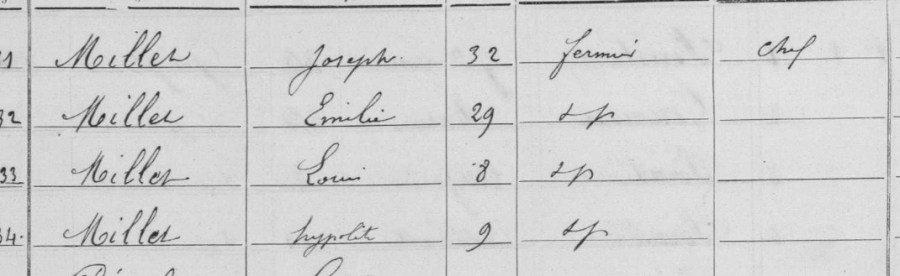 31 Millet Joseph 32 fermier chef
32 Millet Emilie 29 sp
33 Millet Louis 8 sp
34. Millet hypolite 9 sp